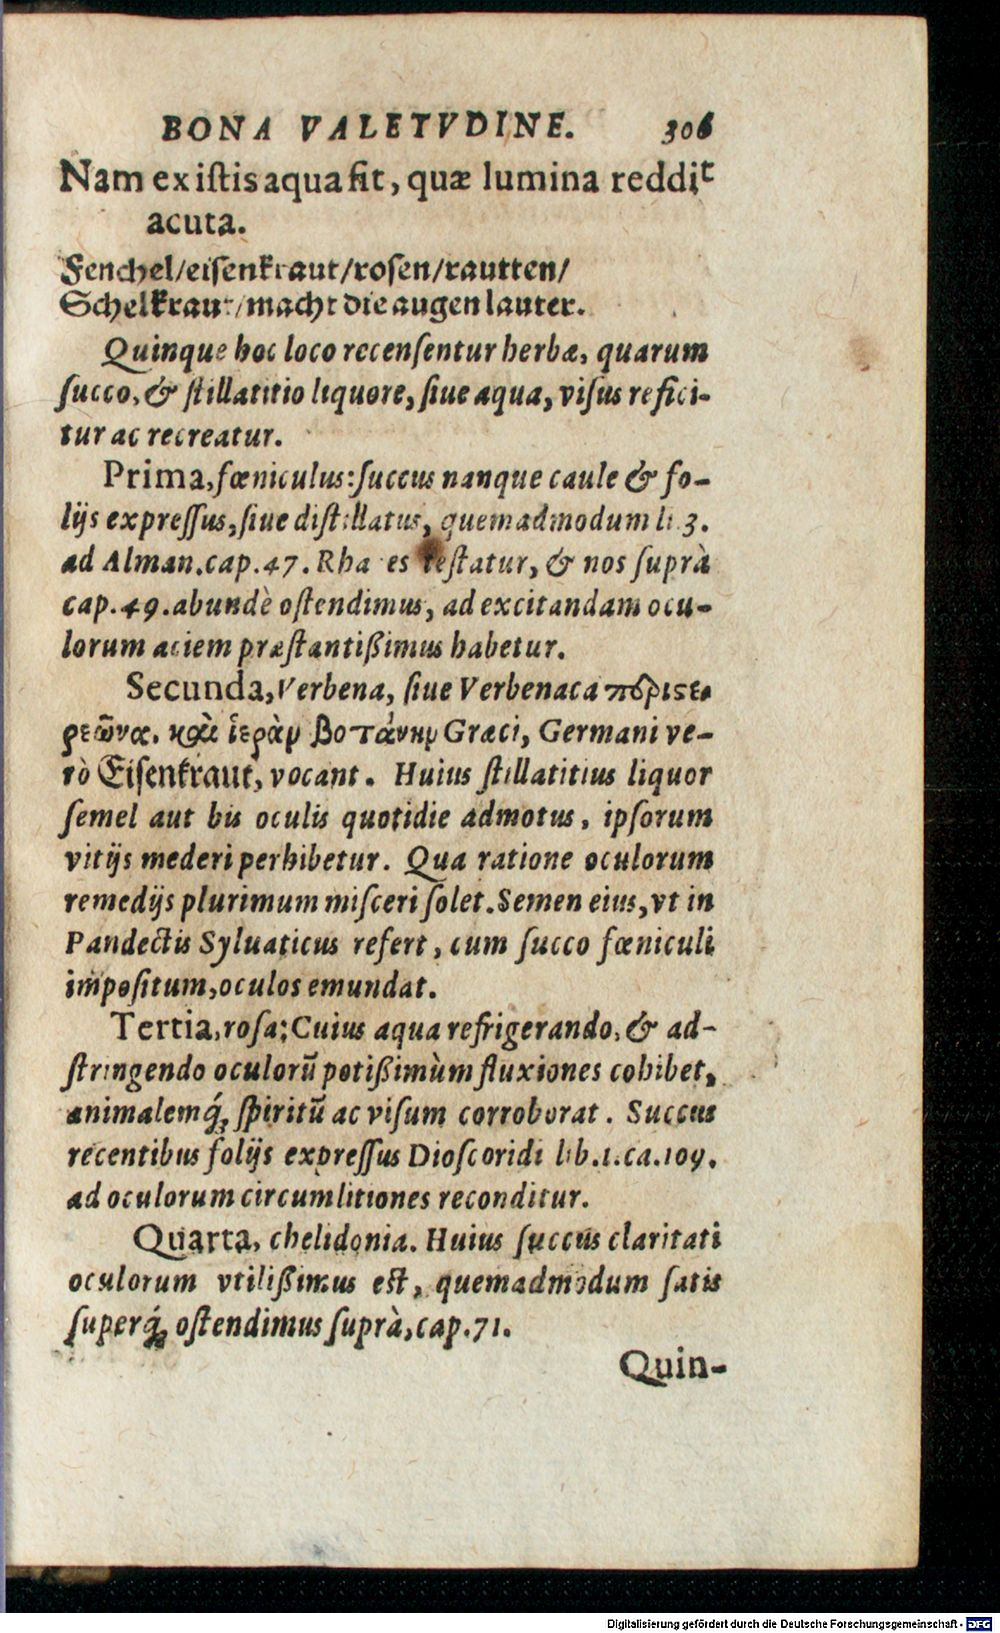 BONA VALETVDINE. 306
Nam ex istis aqua fit, quæ lumina reddit
acuta.
Fenchel/eisenkraut/rosen/rautten/
Schelkraut/macht die augen lauter.
Quinque hoc loco recenſentur herbæ, quarum
ſucco, & ſtillatitio liquore, ſiue aqua, viſus refici-
tur ac recreatur.
Prima, fœniculus: ſuccus nanque caule & fo-
lijs expreſſus, ſiue diſtillatus, quemadmodum li. 3.
ad Alman. cap. 47. Rhases teſtatur, & nos ſuprà
cap. 49. abundè oſtendimus, ad excitandam ocu-
lorum aciem præſtantißimus habetur.
Secunda, Verbena, ſiue Verbenaca περιστε-
ρεῶνα. καὶ ἱερὰν βοτάνην Græci, Germani ve-
rò Eiſenkraut, vocant. Huius ſtillatitius liquor
ſemel aut bis oculis quotidie admotus, ipſorum
vitijs mederi perhibetur. Qua ratione oculorum
remedijs plurimum miſceri ſolet. Semen eius, vt in
Pandectis Syluaticus refert, cum ſucco fœniculi
impoſitum, oculos emundat.
Tertia, roſa; Cuius aqua refrigerando, & ad-
ſtringendo oculorũ potißimùm fluxiones cohibet,
animalemq́; ſpiritũ ac viſum corroborat. Succus
recentibus folijs expreſſus Dioſcoridi lib. 1. ca. 109.
ad oculorum circumlitiones reconditur.
Quarta, chelidonia. Huius ſuccus claritati
oculorum vtilißimus eſt, quemadmodum ſatis
ſuperq́; oſtendimus ſuprà, cap. 71.
Quin-
Digitalisierung gefördert durch die Deutsche Forschungsgemeinschaft - DFG